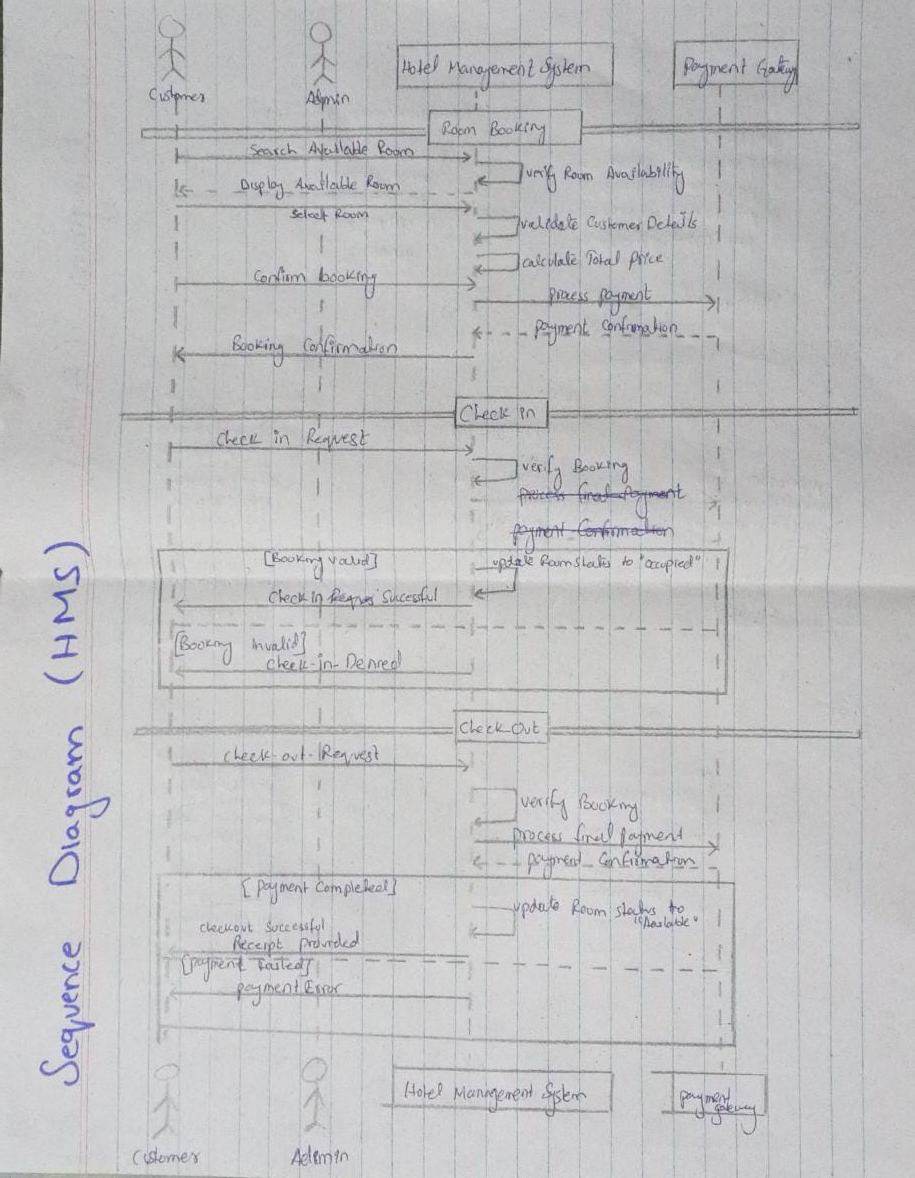 Sequence Diagram (HMS)
Customer
Admin
Hotel Management System
Payment Gateway
Room Booking
Search Available Room
verify Room Availability
Display Available Room
Select Room
validate Customer Details
calculate Total price
Confirm booking
process payment
payment Confirmation
Booking Confirmation
Check in
Check in Request
verify Booking
process final Payment
payment Confirmation
[Booking valid]
update Room status to "occupied"
Check in Sucessful
[Booking Invalid]
Check-in-Denied
Check Out
check-out-Request
verify Booking
process final Payment
payment Confirmation
[payment Completed]
update Room status to
checkout Successful
Receipt provided
[payment failed]
payment Error
Customer
Ademin
Hotel Management System
payment
gateway